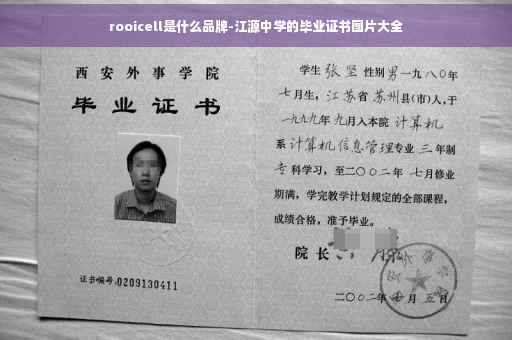 rooicell是什么品牌-江源中学的毕业证书图片大全
西安外事学院
毕业证书
证书编号:0209130411
学生 张坚 性别男一九八〇年
七月生，江苏省苏州县(市)人，于
一九九九年九月入本院 计算机
系计算机信息管理专业 三 年制
专科学习，至二〇〇二年 七月修业
期满，学完教学计划规定的全部课程，
成绩合格，准予毕业。
院长
二〇〇二年 七 月 五 日